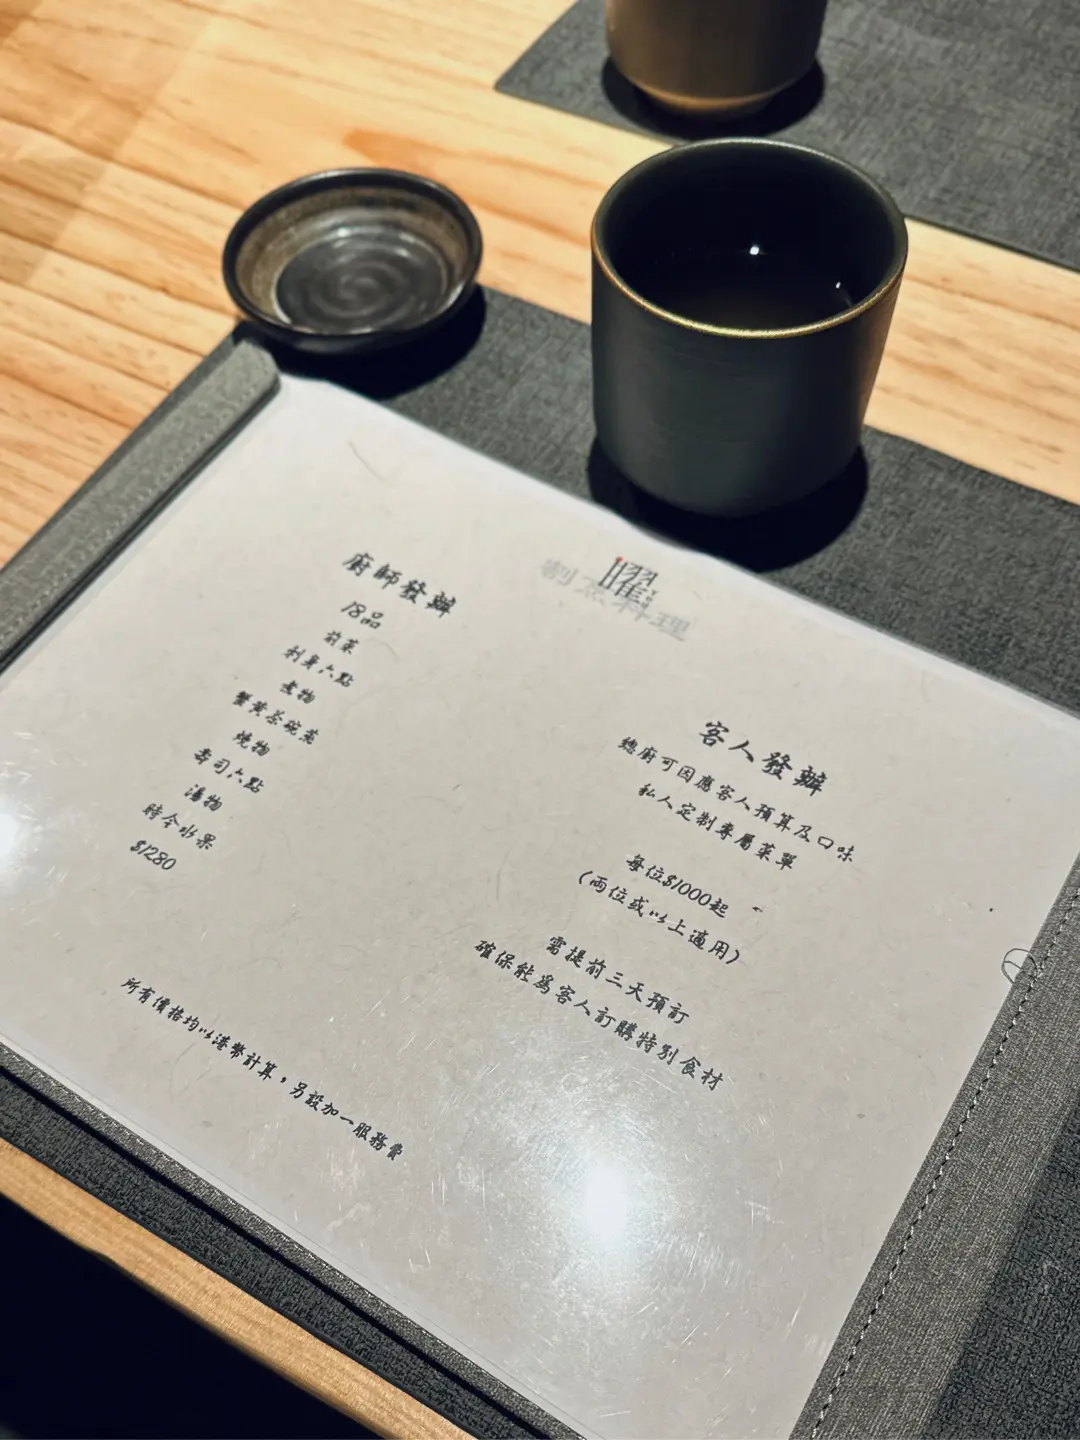 曜
割烹料理
廚師發辦
18品
前菜
刺身六點
煮物
蟹黃茶碗蒸
燒物
壽司六點
湯物
時令水果
$1280
客人發辦
總廚可因應客人預算及口味
私人定制專屬菜單
每位$1000起
(兩位或以上適用)
需提前三天預訂
確保能為客人訂購特別食材
所有價格均以港幣計算，另設加一服務費